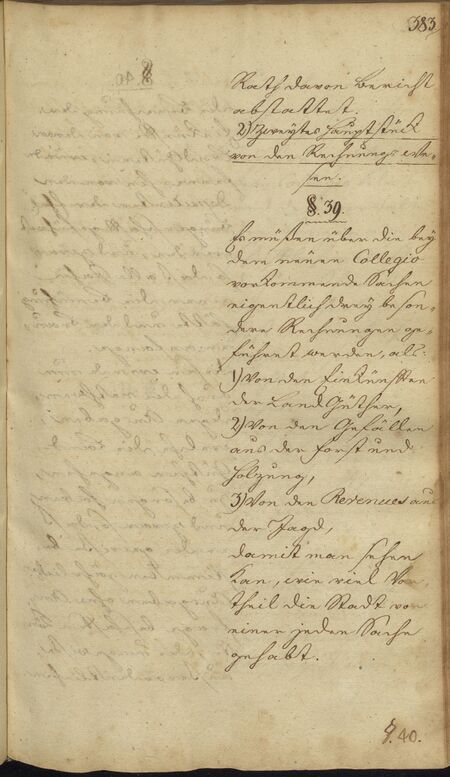 383
Rath davon Bericht
abstattet.
2) Zweytes Hauptstück
von den Rechnungs we-
sen.
§. 39.
Es müßen über die bey
dem neuen Collegio
vorkommende Sachen
eigentlich drey beson-
dere Rechnungen ge-
führet werden, als:
1) Von den Einkünfften
der Land Güther,
2) Von den Gefällen
aus der Forst und
Holzung,
3) Von den Revenues aus
der Jagd,
damit man sehen
kan, wie viel Vor-
theil die Stadt von
einer jeden Sache
gehabt.
§. 40.